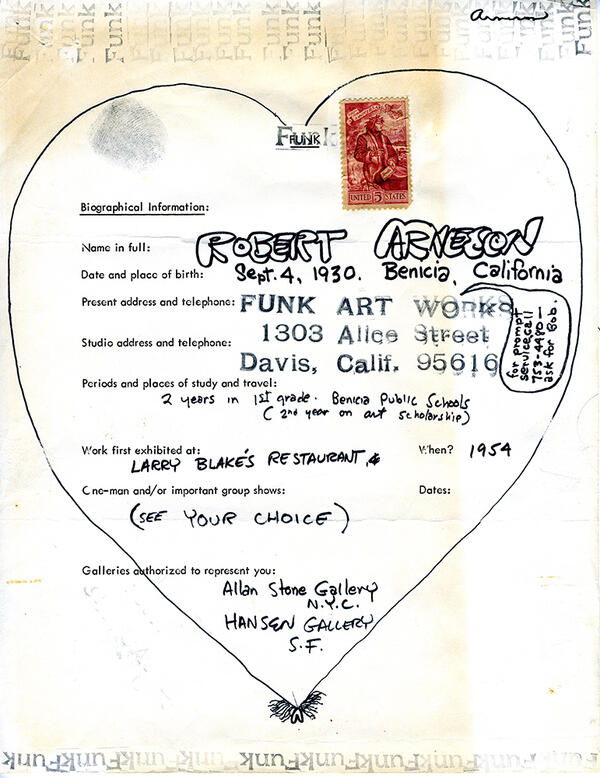 Funk Funk Funk Funk Funk Funk Funk Funk Funk Funk Funk
Arneson
Funk
FUNK
UNITED 5 STATES
Biographical Information:
Name in full: ROBERT ARNESON
Date and place of birth: Sept. 4, 1930. Benicia, California
Present address and telephone: FUNK ART WORKS
Studio address and telephone: 1303 Alice Street
Davis, Calif. 95616
for prompt
service, call
753-4480 -
ask for Bob.
Periods and places of study and travel:
2 years in 1st grade. Benicia Public Schools
(2nd year on art scholarship)
Work first exhibited at: When? 1954
LARRY BLAKE'S RESTAURANT,
One-man and/or important group shows: Dates:
(SEE YOUR CHOICE)
Galleries authorized to represent you:
Allan Stone Gallery
N.Y.C.
HANSEN GALLERY
S.F.
Funk Funk Funk Funk Funk Funk Funk Funk Funk Funk